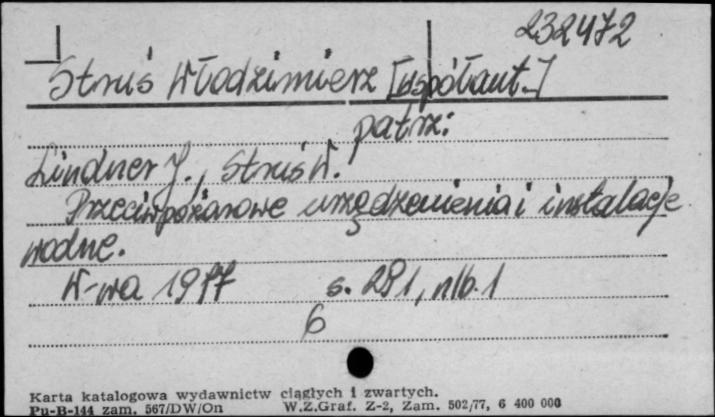 232472
Struś Włodzimierz [współaut.]
patrz:
Lindner J., Struś W.
Przeciwpożarowe urządzenienia i instalacje
wodne.
W-wa 1977 s. 281, nlb. 1
6
Karta katalogowa wydawnictw ciągłych i zwartych.
Pu-B-144 zam. 567/DW/On W.Z.Graf. Z-2, Zam. 502/77, 6 400 000